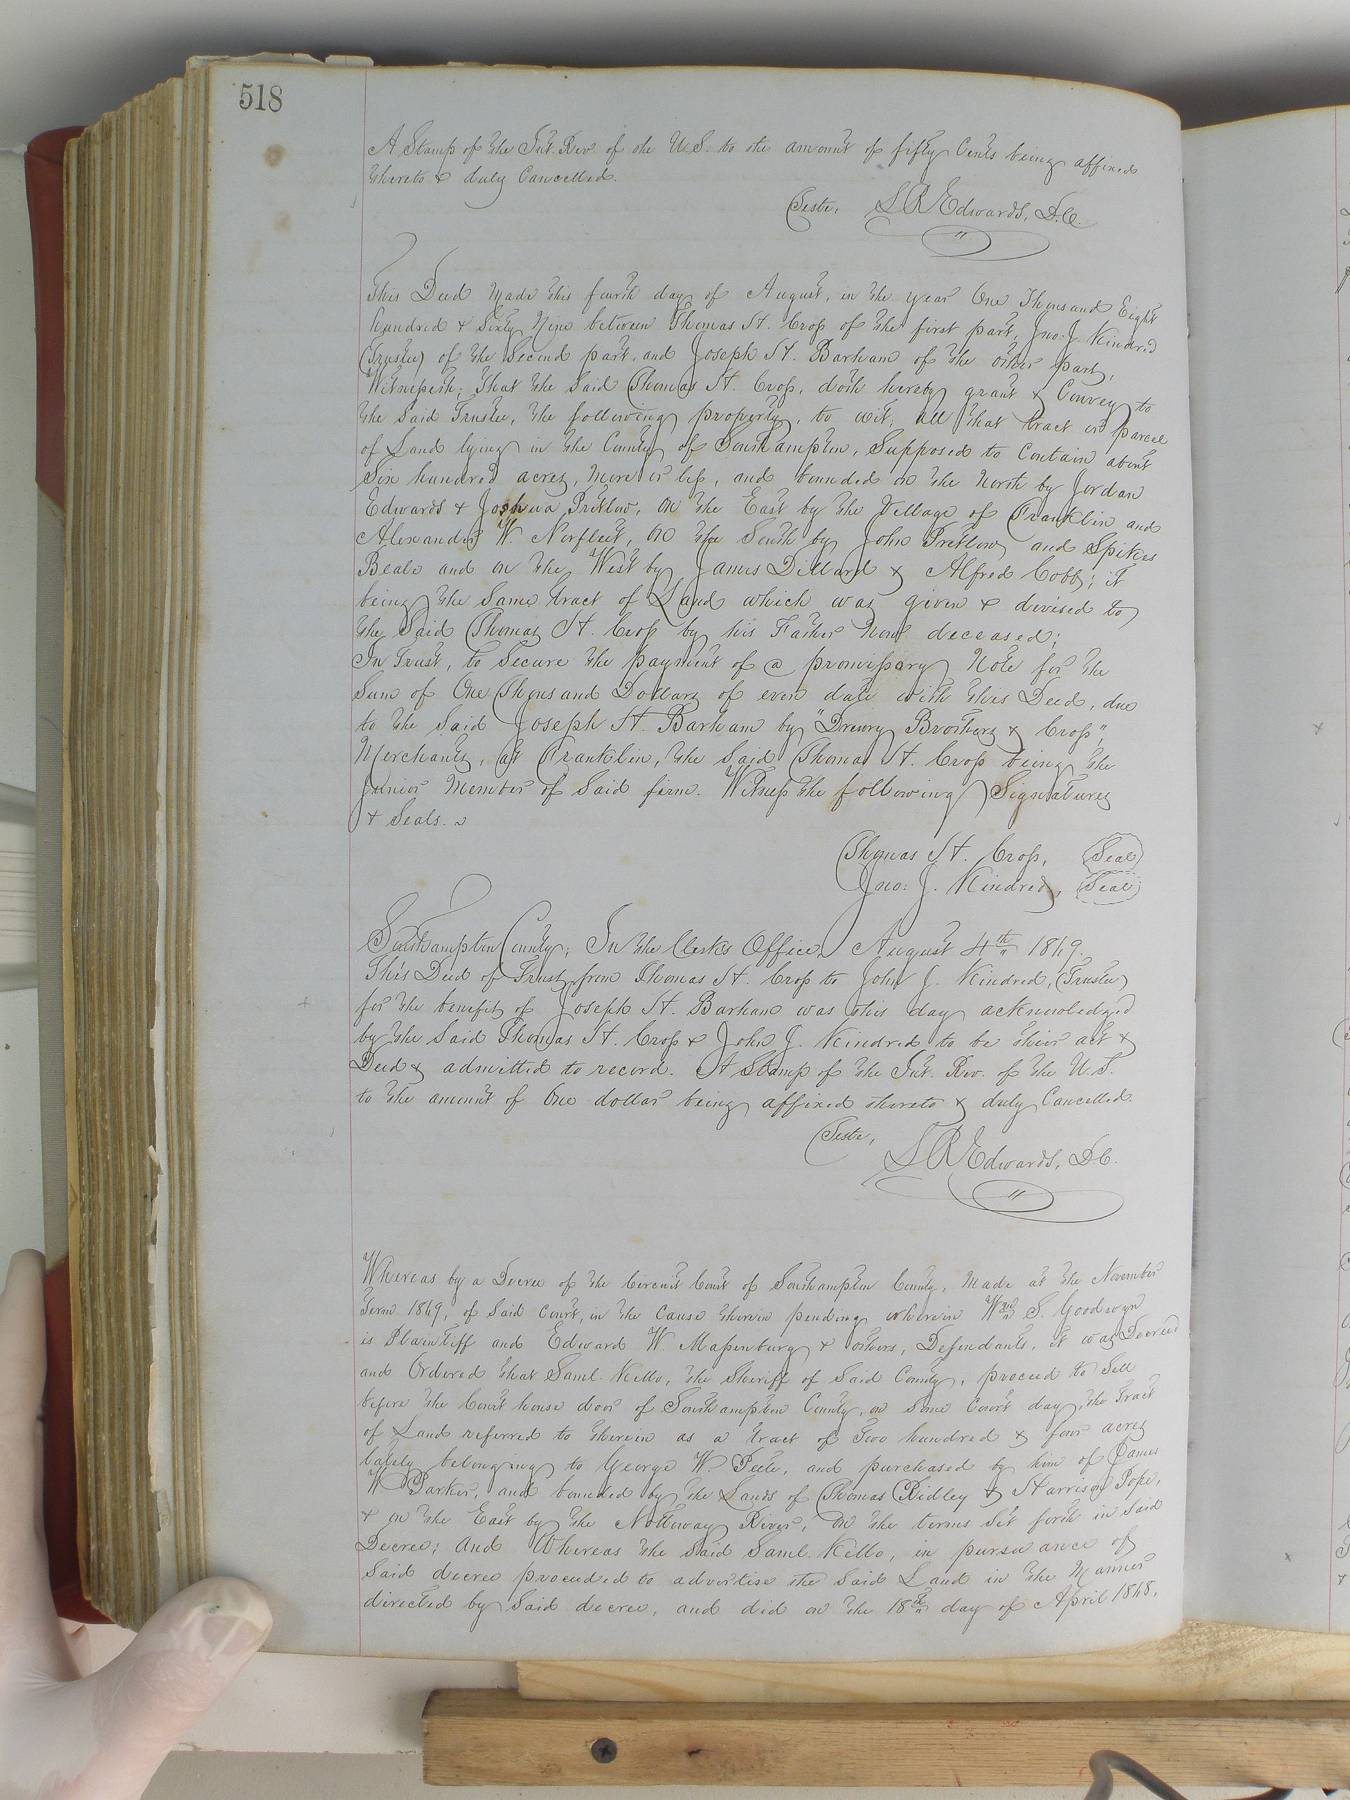 518
A Stamp of the Int. Rev. of the U.S. to the amount of fifty Cents being affixed
thereto & duly Cancelled.
Teste, L R Edwards, D.C.
This Deed Made this fourth day of August, in the year One Thousand Eight
hundred & Sixty Nine between Thomas H. Cross of the first part, Jno: J. Kindred
(Trustee) of the Second part, and Joseph H. Barham of the other part,
Witnesseth; That the Said Thomas H. Cross, doth hereby grant & Convey to
the Said Trustee, the following property, to wit; all that tract or parcel
of Land lying in the County of Southampton, Supposed to Contain about
Six hundred acres, More or less, and bounded on the North by Jordan
Edwards & Joshua Pretlow, on the East by the Village of Franklin and
Alexander W. Norfleet, on the South by John Pretlow and Spikes
Beale and on the West by James Dillard & Alfred Cobb; it
being the Same tract of Land which was given & devised to
the Said Thomas H. Cross by his Father Now deceased;
In Trust, to Secure the payment of a promissary Note for the
Sum of One Thousand Dollars of even date with this Deed, due
to the Said Joseph H. Barham by "Drewry Brothers & Cross",
Merchants, at Franklin, the Said Thomas H. Cross being the
Junior Member of Said firm. Witness the following Signatures
& Seals.
Thomas H. Cross, Seal
Jno: J. Kindred, Seal
Southampton County; In the Clerks Office, August 4th 1869.
This Deed of Trust from Thomas H. Cross to John J. Kindred, (Trustee)
for the benefit of Joseph H. Barham was this day acknowledged
by the Said Thomas H. Cross & John J. Kindred to be their act &
Deed & admitted to record. A Stamp of the Int. Rev. of the U.S.
to the amount of One dollar being affixed thereto & duly Cancelled.
Teste, L R Edwards, D.C.
Whereas by a Decree of the Circuit Court of Southampton County, Made at the November
Term 1869, of Said Court, in the Cause therein pending wherein Wm S. Goodwyn
is Plaintiff and Edward W. Massenburg & others, Defendants, it was Decreed
and Ordered that Saml. Kello, the Sheriff of Said County, proceed to Sell
before the Court house door of Southampton County, on Some Court day, the Tract
of Land referred to therein as a tract of Two hundred & four acres
lately belonging to George W. Peete, and purchased by him of James
W Parker, and bounded by the Lands of Thomas Ridley & Harrison Pope,
& on the East by the Nottoway River, on the terms Set forth in Said
Decree; And Whereas the Said Saml. Kello, in pursuance of
Said decree proceeded to advertise the Said Land in the Manner
directed by Said decree, and did on the 18th day of April 1868,